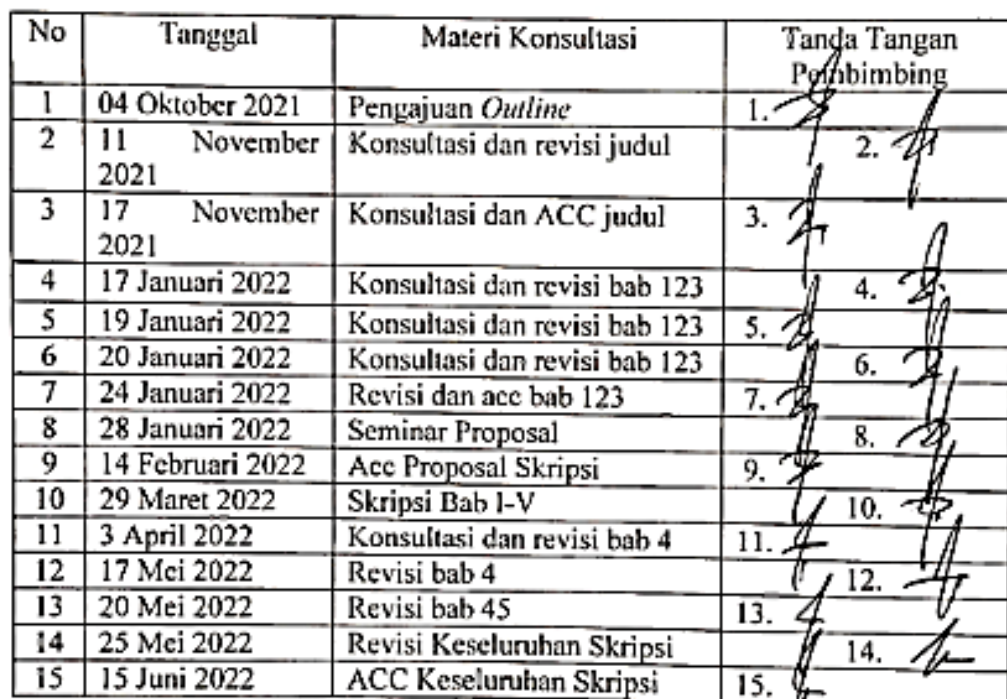 No Tanggal Materi Konsultasi Tanda Tangan
Pembimbing
1 04 Oktober 2021 Pengajuan Outline 1.
2 11 November Konsultasi dan revisi judul 2.
2021
3 17 November Konsultasi dan ACC judul 3.
2021
4 17 Januari 2022 Konsultasi dan revisi bab 123 4.
5 19 Januari 2022 Konsultasi dan revisi bab 123 5.
6 20 Januari 2022 Konsultasi dan revisi bab 123 6.
7 24 Januari 2022 Revisi dan acc bab 123 7.
8 28 Januari 2022 Seminar Proposal 8.
9 14 Februari 2022 Acc Proposal Skripsi 9.
10 29 Maret 2022 Skripsi Bab I-V 10.
11 3 April 2022 Konsultasi dan revisi bab 4 11.
12 17 Mei 2022 Revisi bab 4 12.
13 20 Mei 2022 Revisi bab 45 13.
14 25 Mei 2022 Revisi Keseluruhan Skripsi 14.
15 15 Juni 2022 ACC Keseluruhan Skripsi 15.